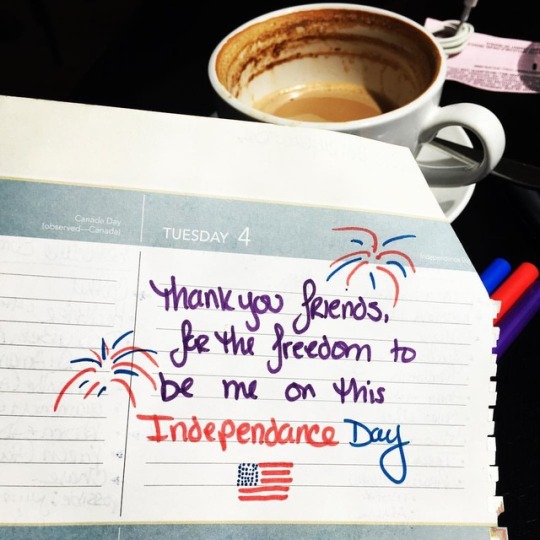 Canada Day
(observed—Canada)
TUESDAY 4
Thank you friends,
for the freedom to
be me on this
Independance Day